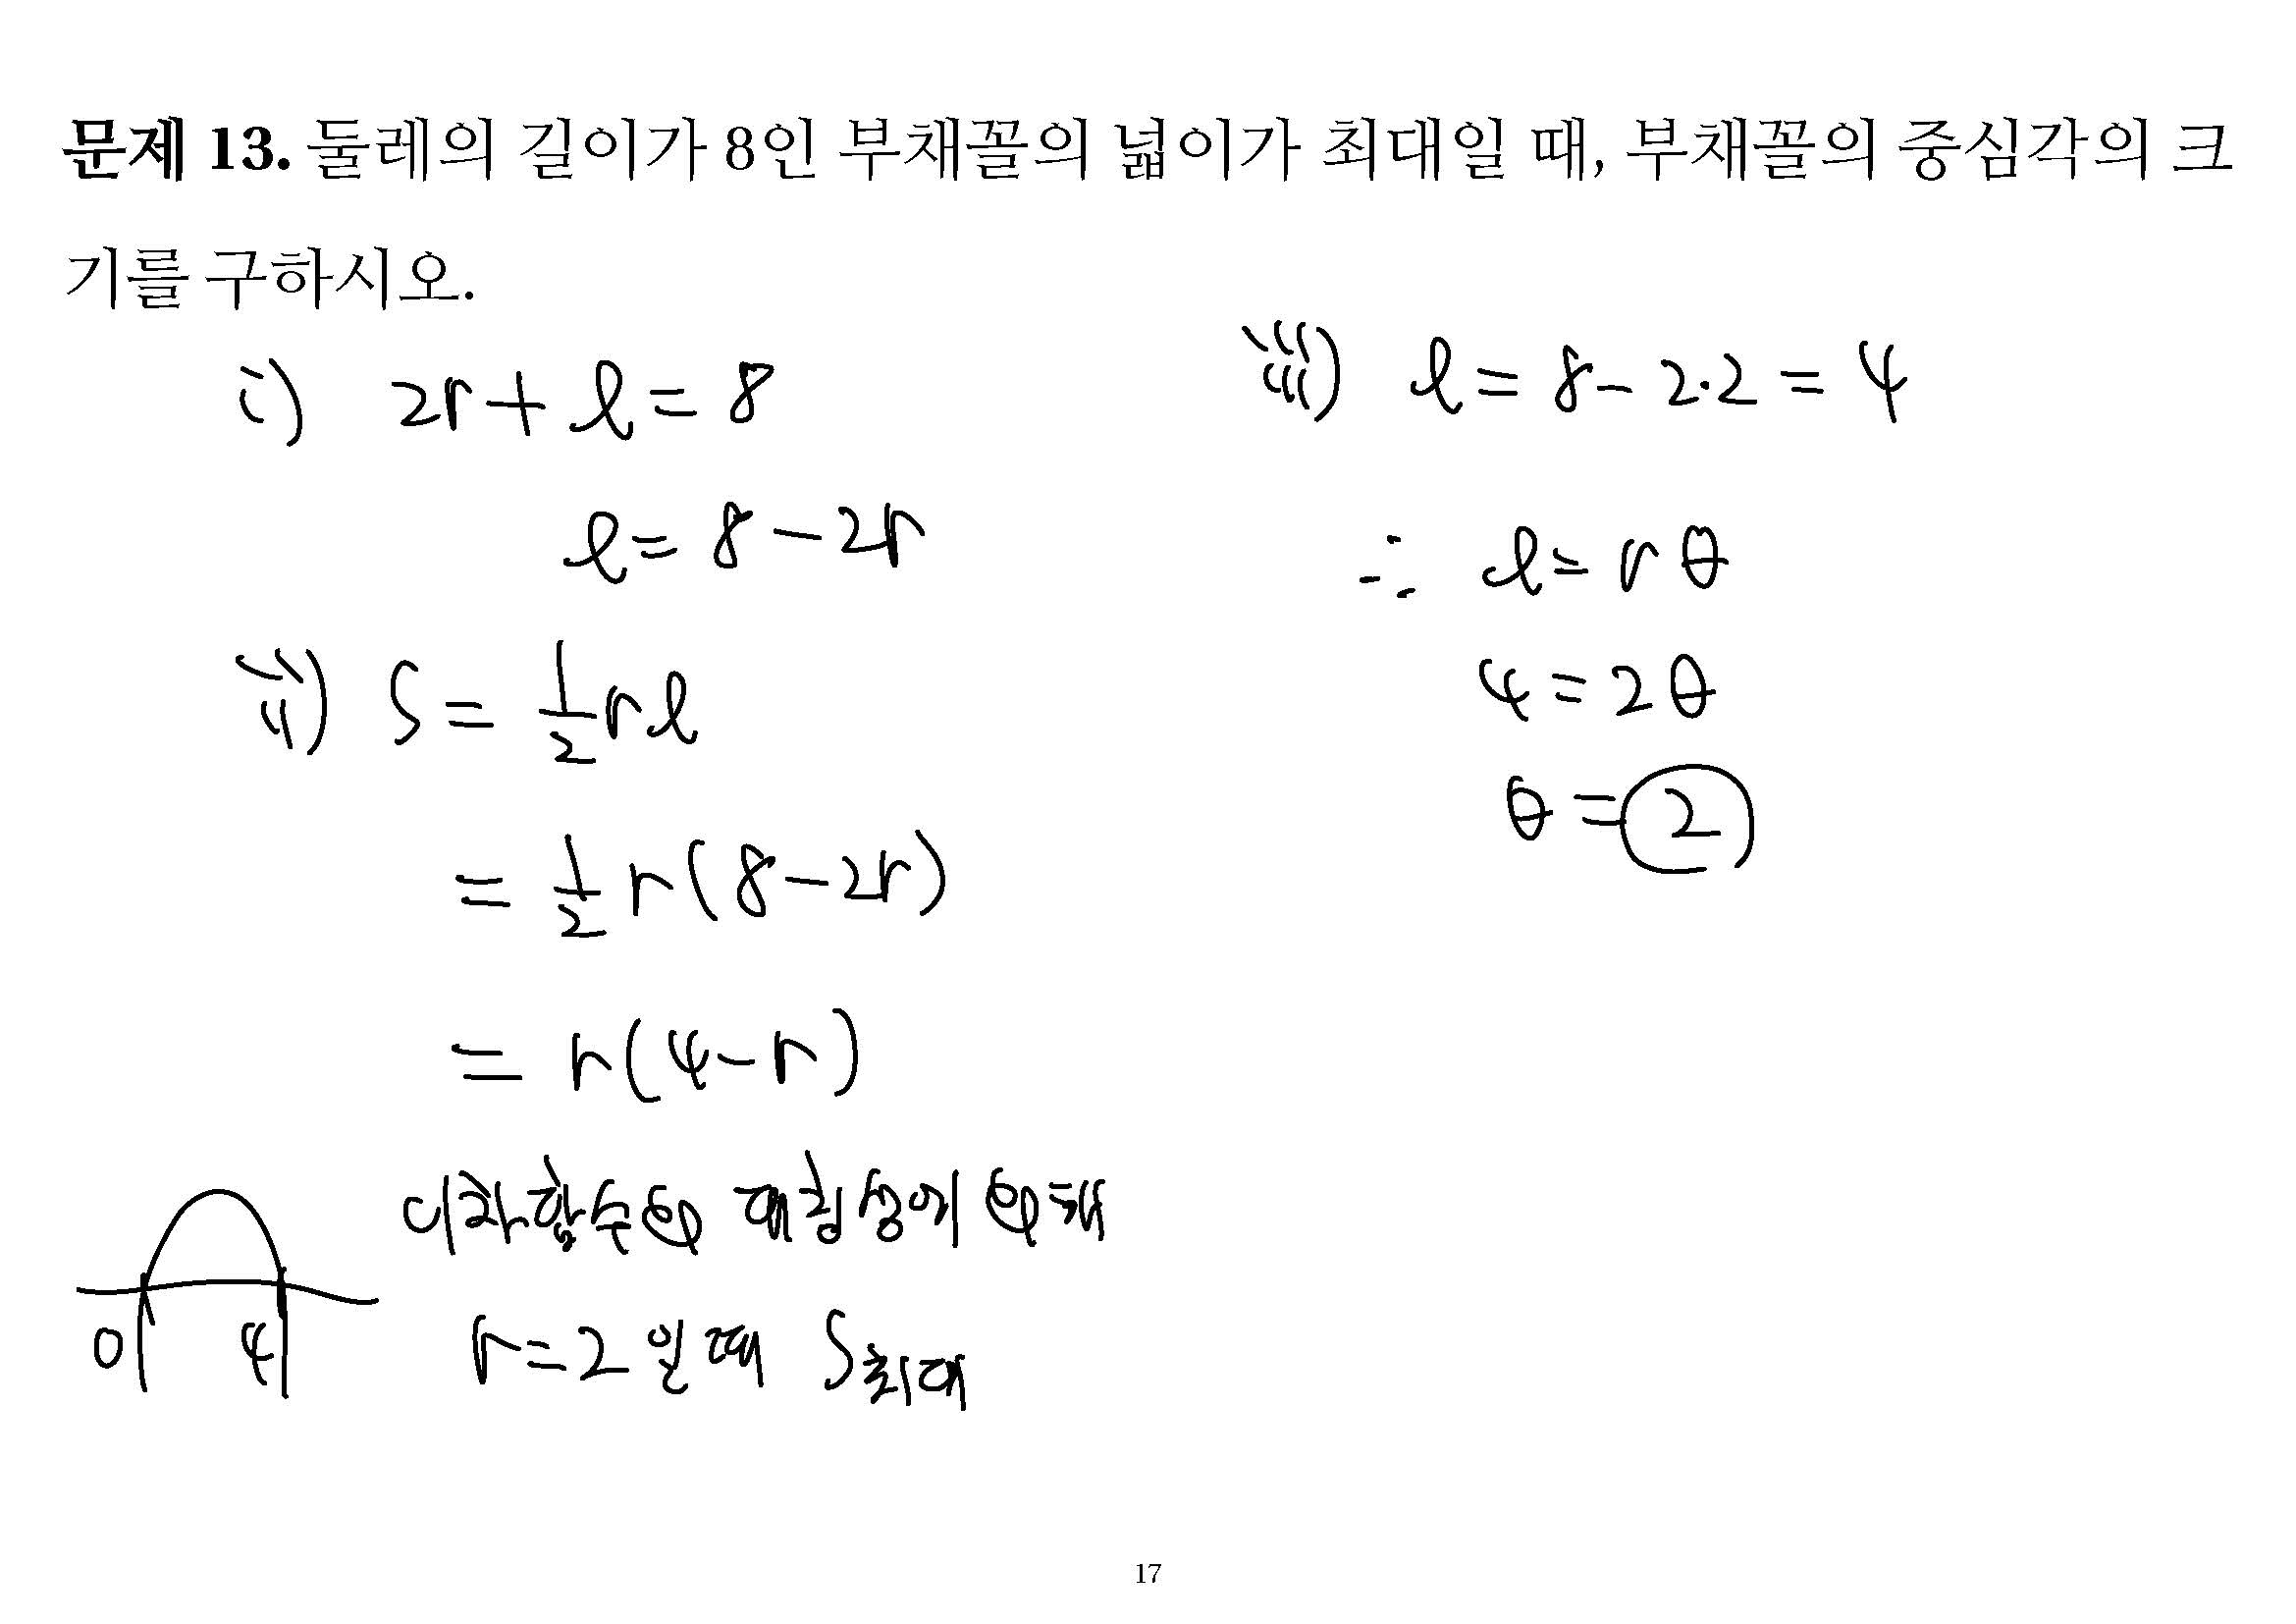 문제 13. 둘레의 길이가 8인 부채꼴의 넓이가 최대일 때, 부채꼴의 중심각의 크
기를 구하시오.
i) 2r + l = 8
l = 8 - 2r
ii) S = 1/2 rl
= 1/2 r(8-2r)
= r(4-r)
이차함수의 대칭성에 의해
0 4
r=2 일 때 S최대
iii) l = 8 - 2·2 = 4
∴ l = rθ
4 = 2θ
θ = 2
17